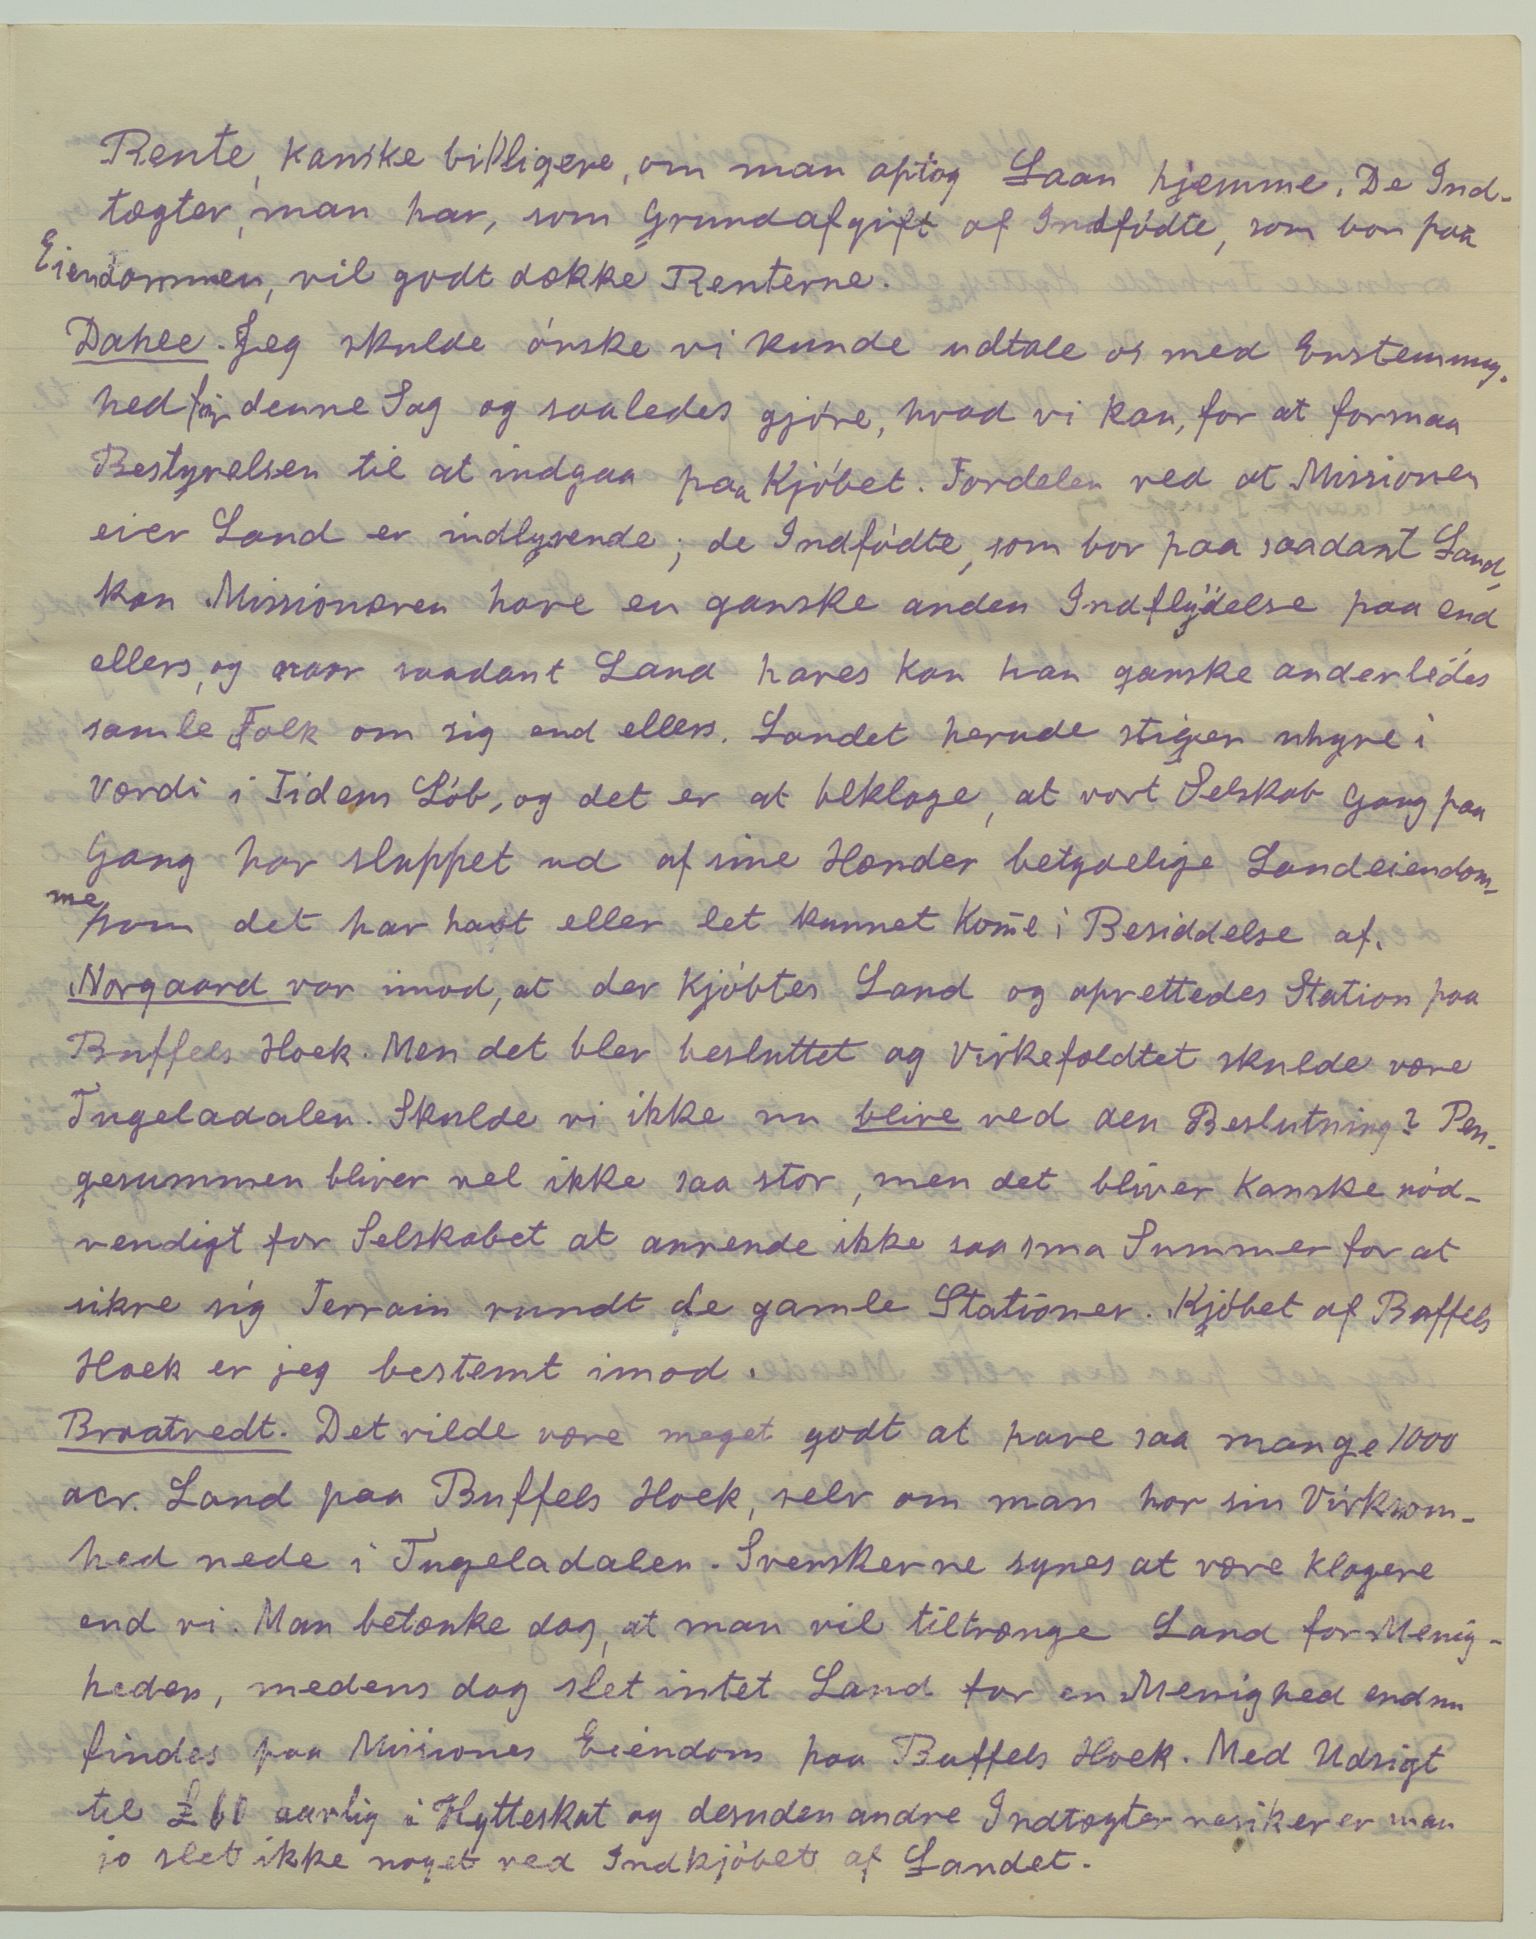 Rente, kanske billigere, om man optog Laan hjemme. De Ind-
tægter, man har, som Grundafgift af Indfødte, som bor paa
Eiendommen, vil godt dække Renterne.
Dahle. Jeg skulde ønske vi kunde udtale os med Enstemmig-
hed for denne Sag og saaledes gjøre, hvad vi kan, for at formaa
Bestyrelsen til at indgaa paa Kjøbet. Fordelen ved at Missionen
eier Land er indlysende; de Indfødte, som bor paa saadant Land,
kan Missionæren have en ganske anden Indflydelse paa end
ellers, og naar saadant Land haves kan han ganske anderledes
samle Folk om sig end ellers. Landet herude stiger uhyre i
Værdi i Tidens Løb, og det er at beklage, at vort Selskab Gang paa
Gang har sluppet ud af sine Hænder betydelige Landeiendom-
me, som det har havt eller let kunnet kom̄e i Besiddelse af.
Norgaard var imod, at der kjøbtes Land og oprettedes Station paa
Buffels Hoek. Men det blev besluttet og Virkefældtet skulde være
Tugeladalen. Skulde vi ikke nu blive ved den Beslutning? Pen-
gesummen bliver vel ikke saa stor, men det bliver kanske nød-
vendigt for Selskabet at anvende ikke saa sma Summer for at
sikre sig Terrain rundt de gamle Stationer. Kjøbet af Buffels
Hoek er jeg bestemt imod.
Braatvedt. Det vilde være meget godt at have saa mange 1000
acr. Land paa Buffels Hoek, selv om man har sin Virksom-
hed nede i Tugeladalen. Svenskerne synes at være klogere
end vi. Man betænke dog, at man vil tiltrænge Land for Menig-
heden, medens dog slet intet Land for en Menighed endnu
findes paa Missiones Eiendom paa Buffels Hoek. Med Udsigt
til £60 aarlig i Hytteskat og desuden andre Indtægter resikerer man
jo slet ikke noget ved Indkjøbet af Landet.